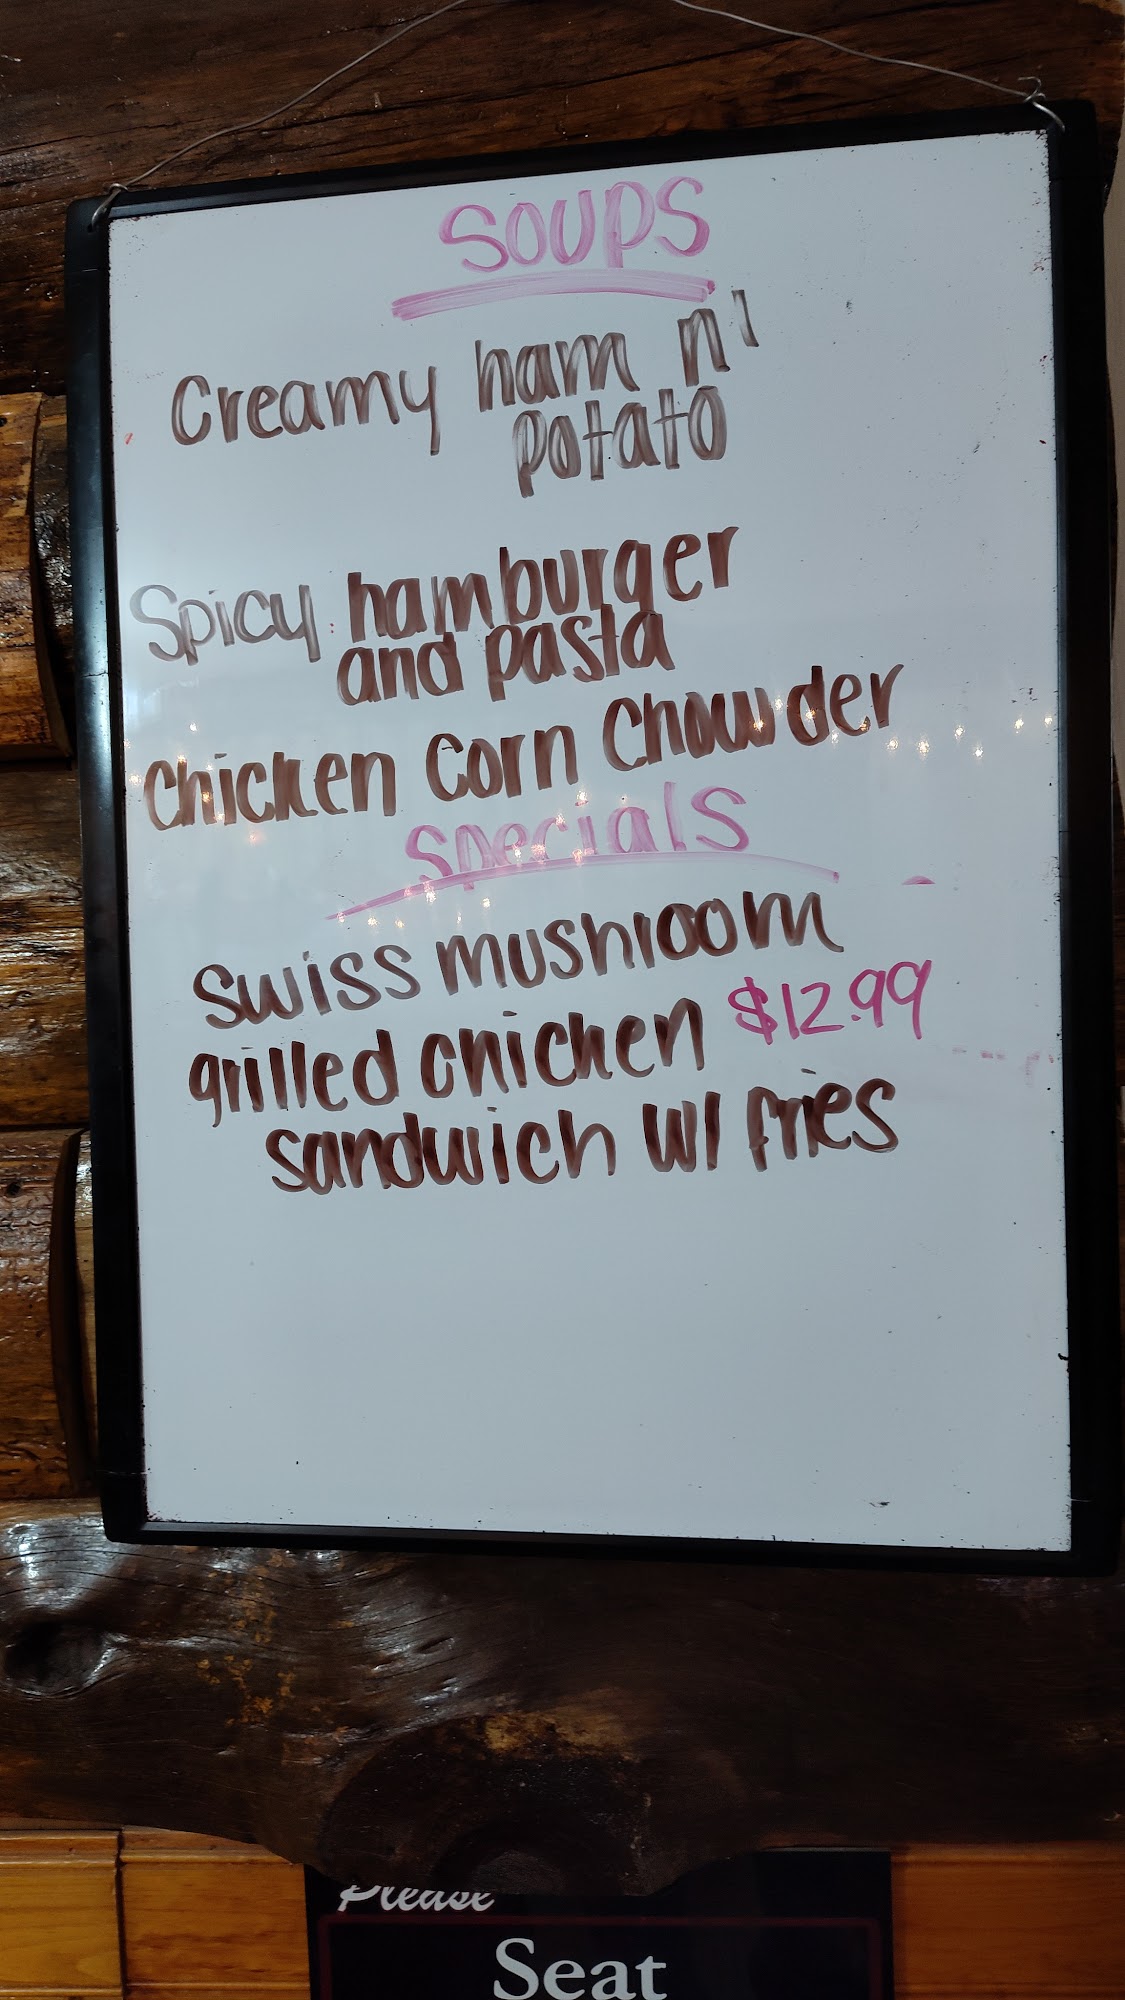 Soups
Creamy ham n'
potato
Spicy hamburger
and pasta
Chicken Corn Chowder
Specials
Swiss mushroom
grilled chicken $12.99
sandwich w/ fries
Please
Seat